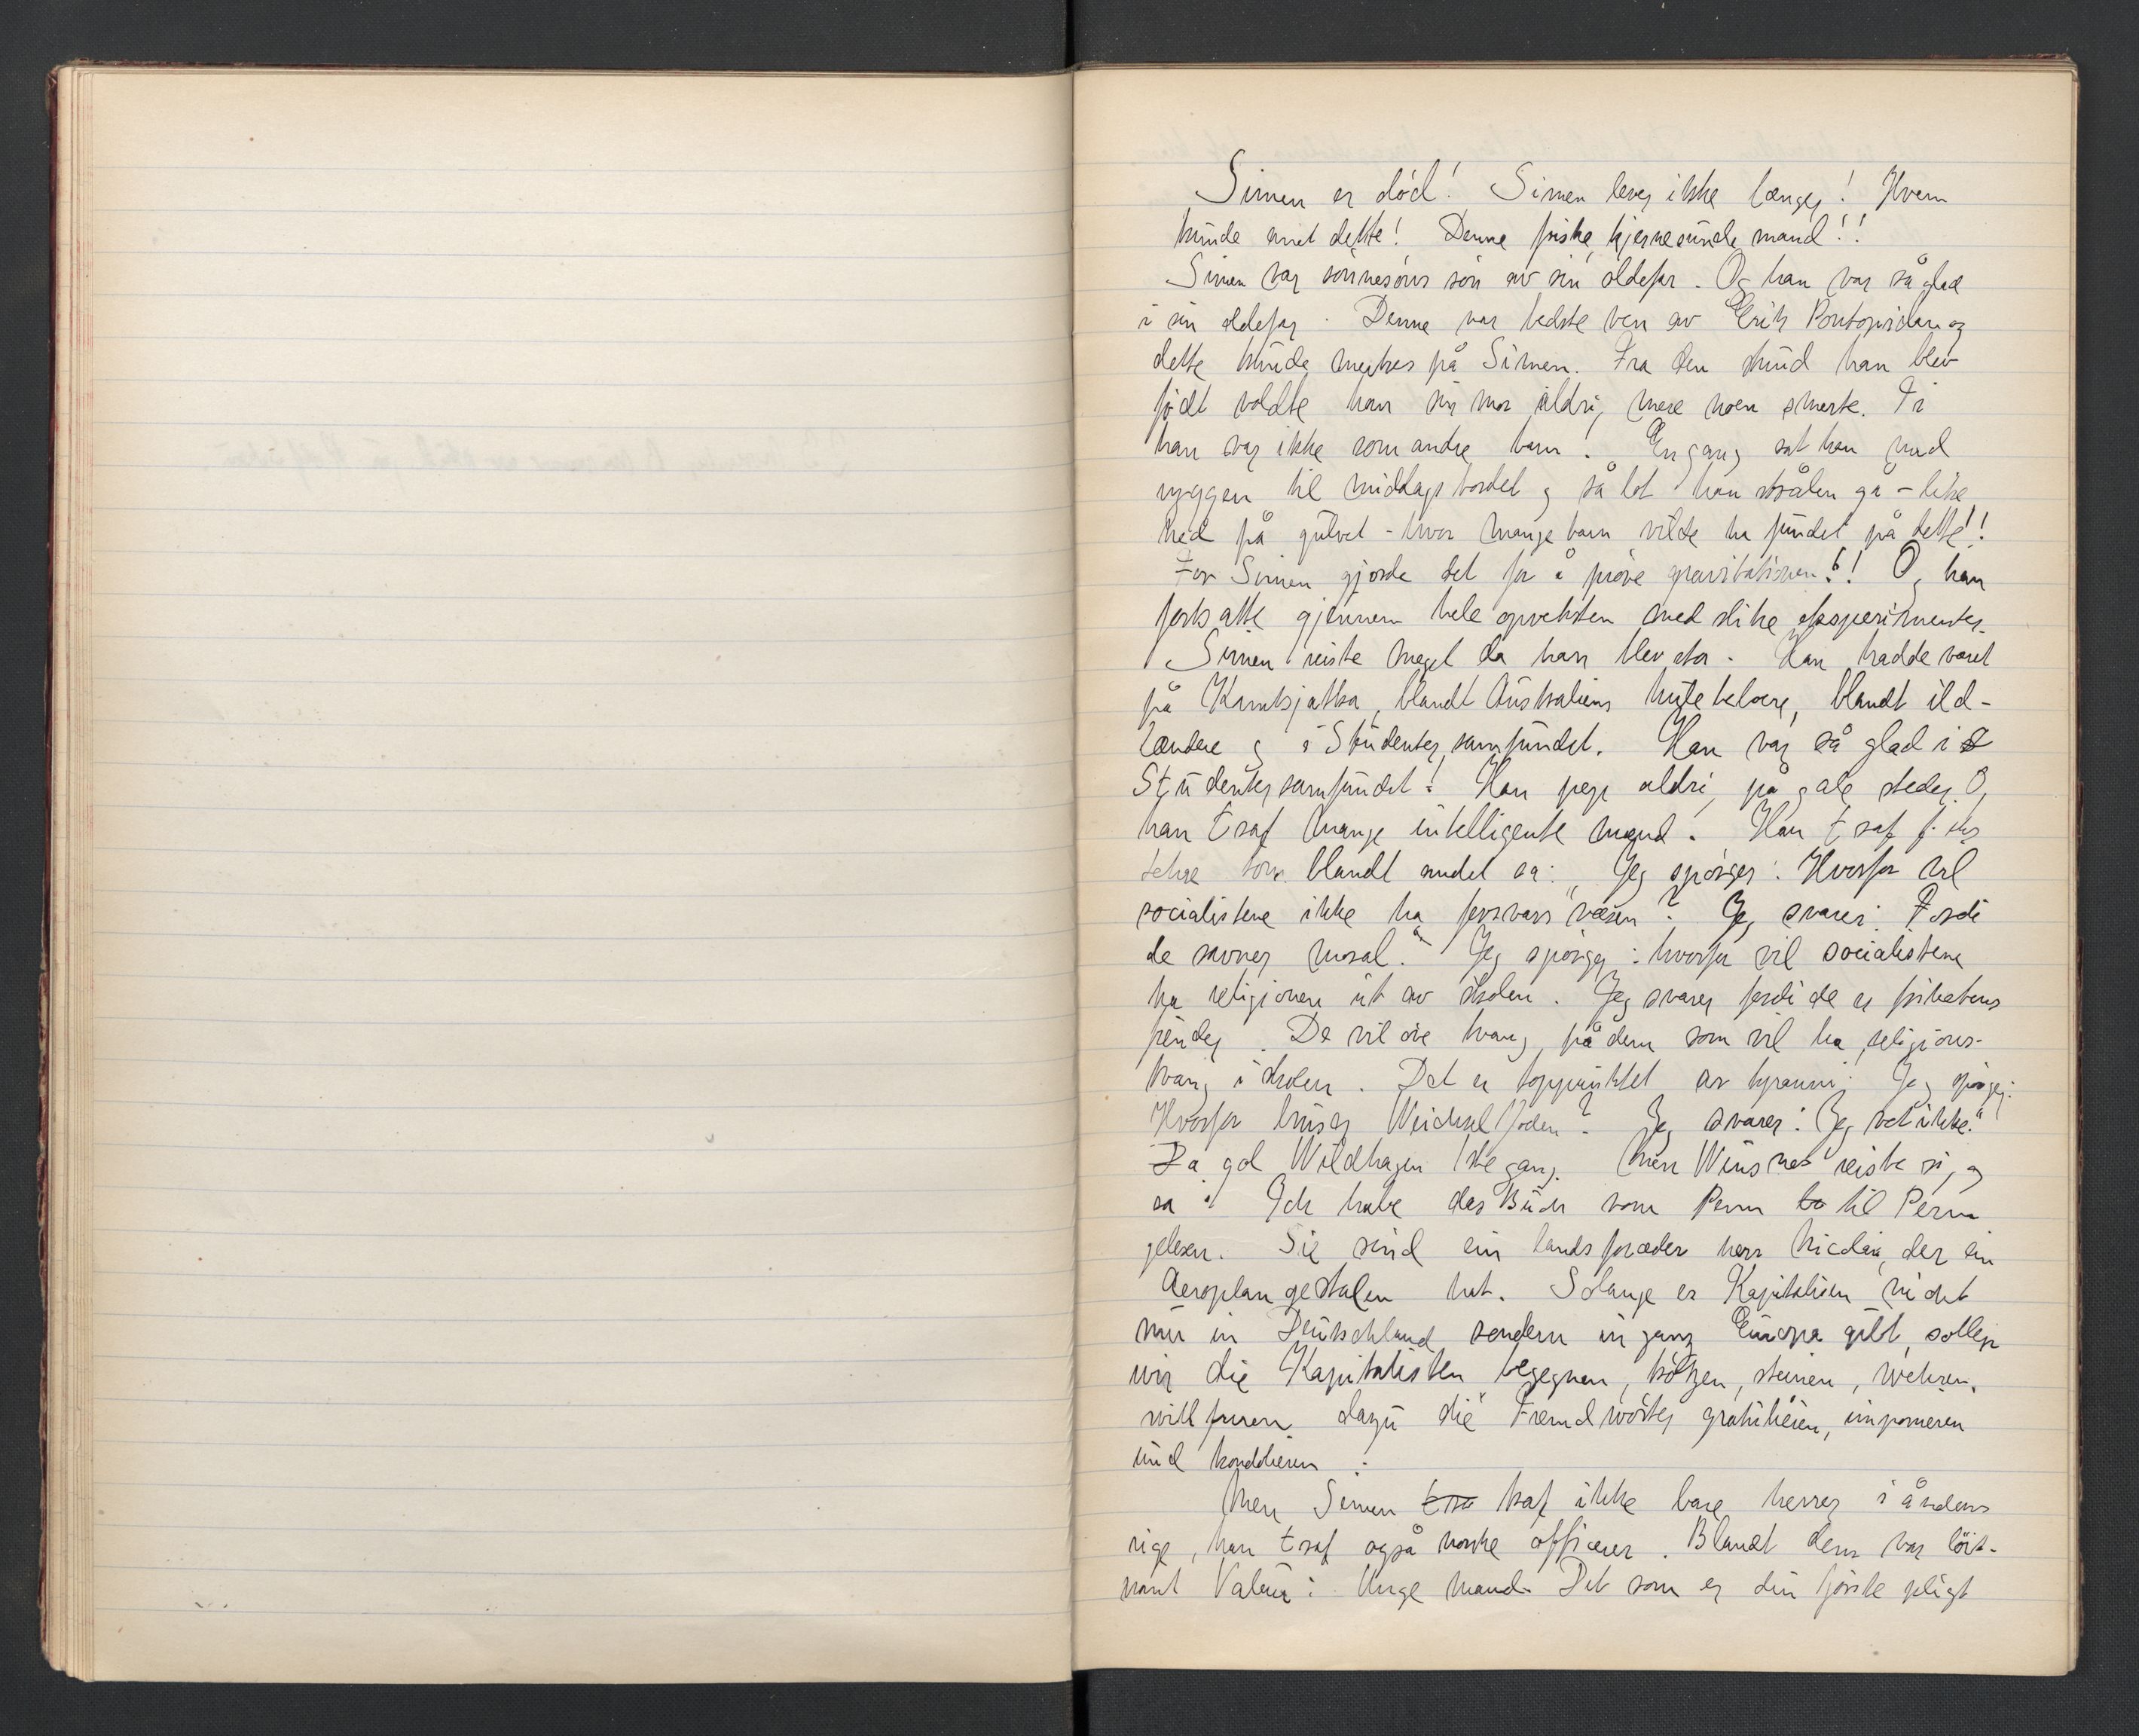 Simen er död! Simen lever ikke længer! Hvem
kunde anet dette! Denne friske, kjernesunde mand!!
Simen var sönnesöns sön av sin oldefar. Og han var så glad
i sin oldefar. Denne var bedste ven av Erik Pontopidan og
dette kunde merkes på Simen. Fra den stund han blev
födt voldte han sin mor aldri mere noen smerte. Ti
han var ikke som andre barn! Engang sat han med
ryggen til middagsbordet og så lot han skålen gå - like
ned på gulvet - hvor mange barn vilde ha fundet på dette!!
For Simen gjorde det for å pröve gravitationen!! Og han
fortsatte gjennem hele opveksten med slike eksperimenter.
Simen reiste meget da han blev stor. Han hadde været
på Kamtsjatka, blandt Australiens huleboere, blandt ild-
lændere og i Studentersamfundet. Han var så glad i
Studentersamfundet! Han pep aldri på gale steder. Og
han traf mange intelligente mænd. Han traf f. eks
som blandt andet sa: „Jeg spörger: Hvorfor vil
socialistene ikke ha forsvarsvæsen? Jeg svarer: Fordi
de savner moral." Jeg spörger: hvorfor vil socialistene
ha religionen ut av skolen. Jeg svarer fordi de er frihetens
fiender. De vil öve tvang på dem som vil ha religions-
tvang i skolen. Det er toppunktet av tyranni. Jeg spörger:
Hvorfor bruser? Jeg svarer: Jeg vet ikke."
Da gol Wildhagen 1ste gang. Men Winsnes reiste sig og
sa: Ich habe das Buch vom Perm til Perm
gelesen. Sie sind ein landsforræder herr, der ein
Aeroplan gestolen hat. Solange er Kapitalien nicht
nur in Deutschland sondern in ganz Europa gibt, sollen
wir die Kapitalisten begegnen, trotzen, steinen, wehren,
willfaren dazu die Fremdwörter gratulieren, imponieren
und kondolieren.
Men Simen traf ikke bare herrer i åndens
rige, han traf også norske officerer. Blandt dem var löit-
nant: Unge mand. Det som er din förste pligt